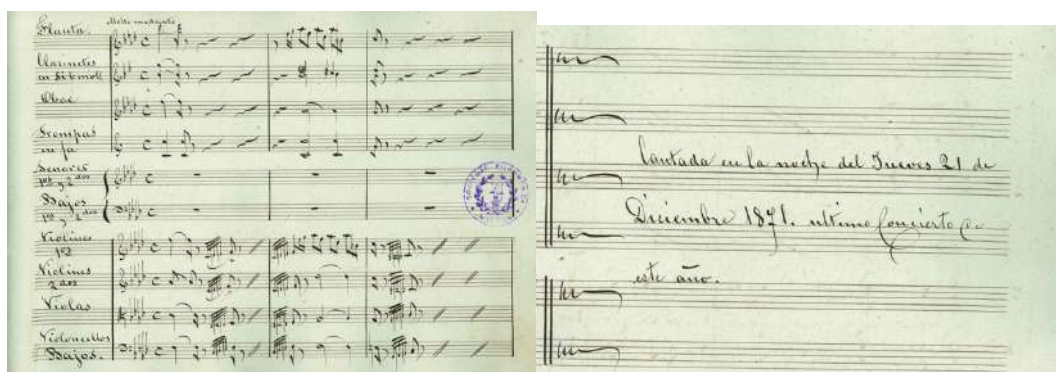 Molto moderato
Flauta.
Clarinetes
en Si b moll
Oboe
Trompas
en fa
Tenores
1os y 2dos
Bajos
1os y 2dos
Violines
1os
Violines
2dos
Violas
Violoncellos
Bajos.
Cantada en la noche del Jueves 21 de
Diciembre 1871. ultimo Concierto de
este año.